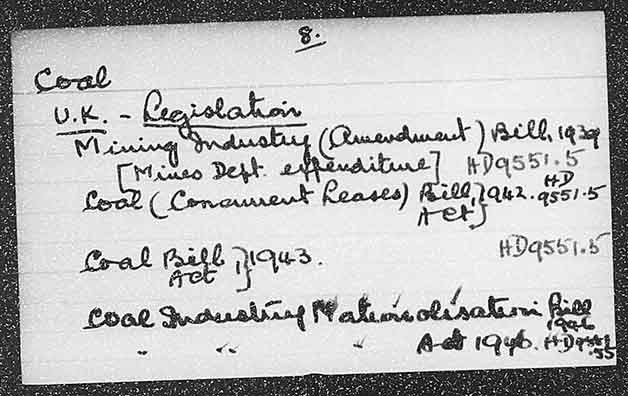 8.
Coal
U.K. - Legislation
Mining Industry (Amendment) Bill, 1939
[Mines Dept. expenditure] HD9551.5
Coal (Concurrent Leases) Bill, } 1942. HD 9551.5
Act }
Coal Bill, } 1943. HD9551.5
Act }
Coal Industry Nationalisation Bill 1946
" " " Act 1946. HD9551.55